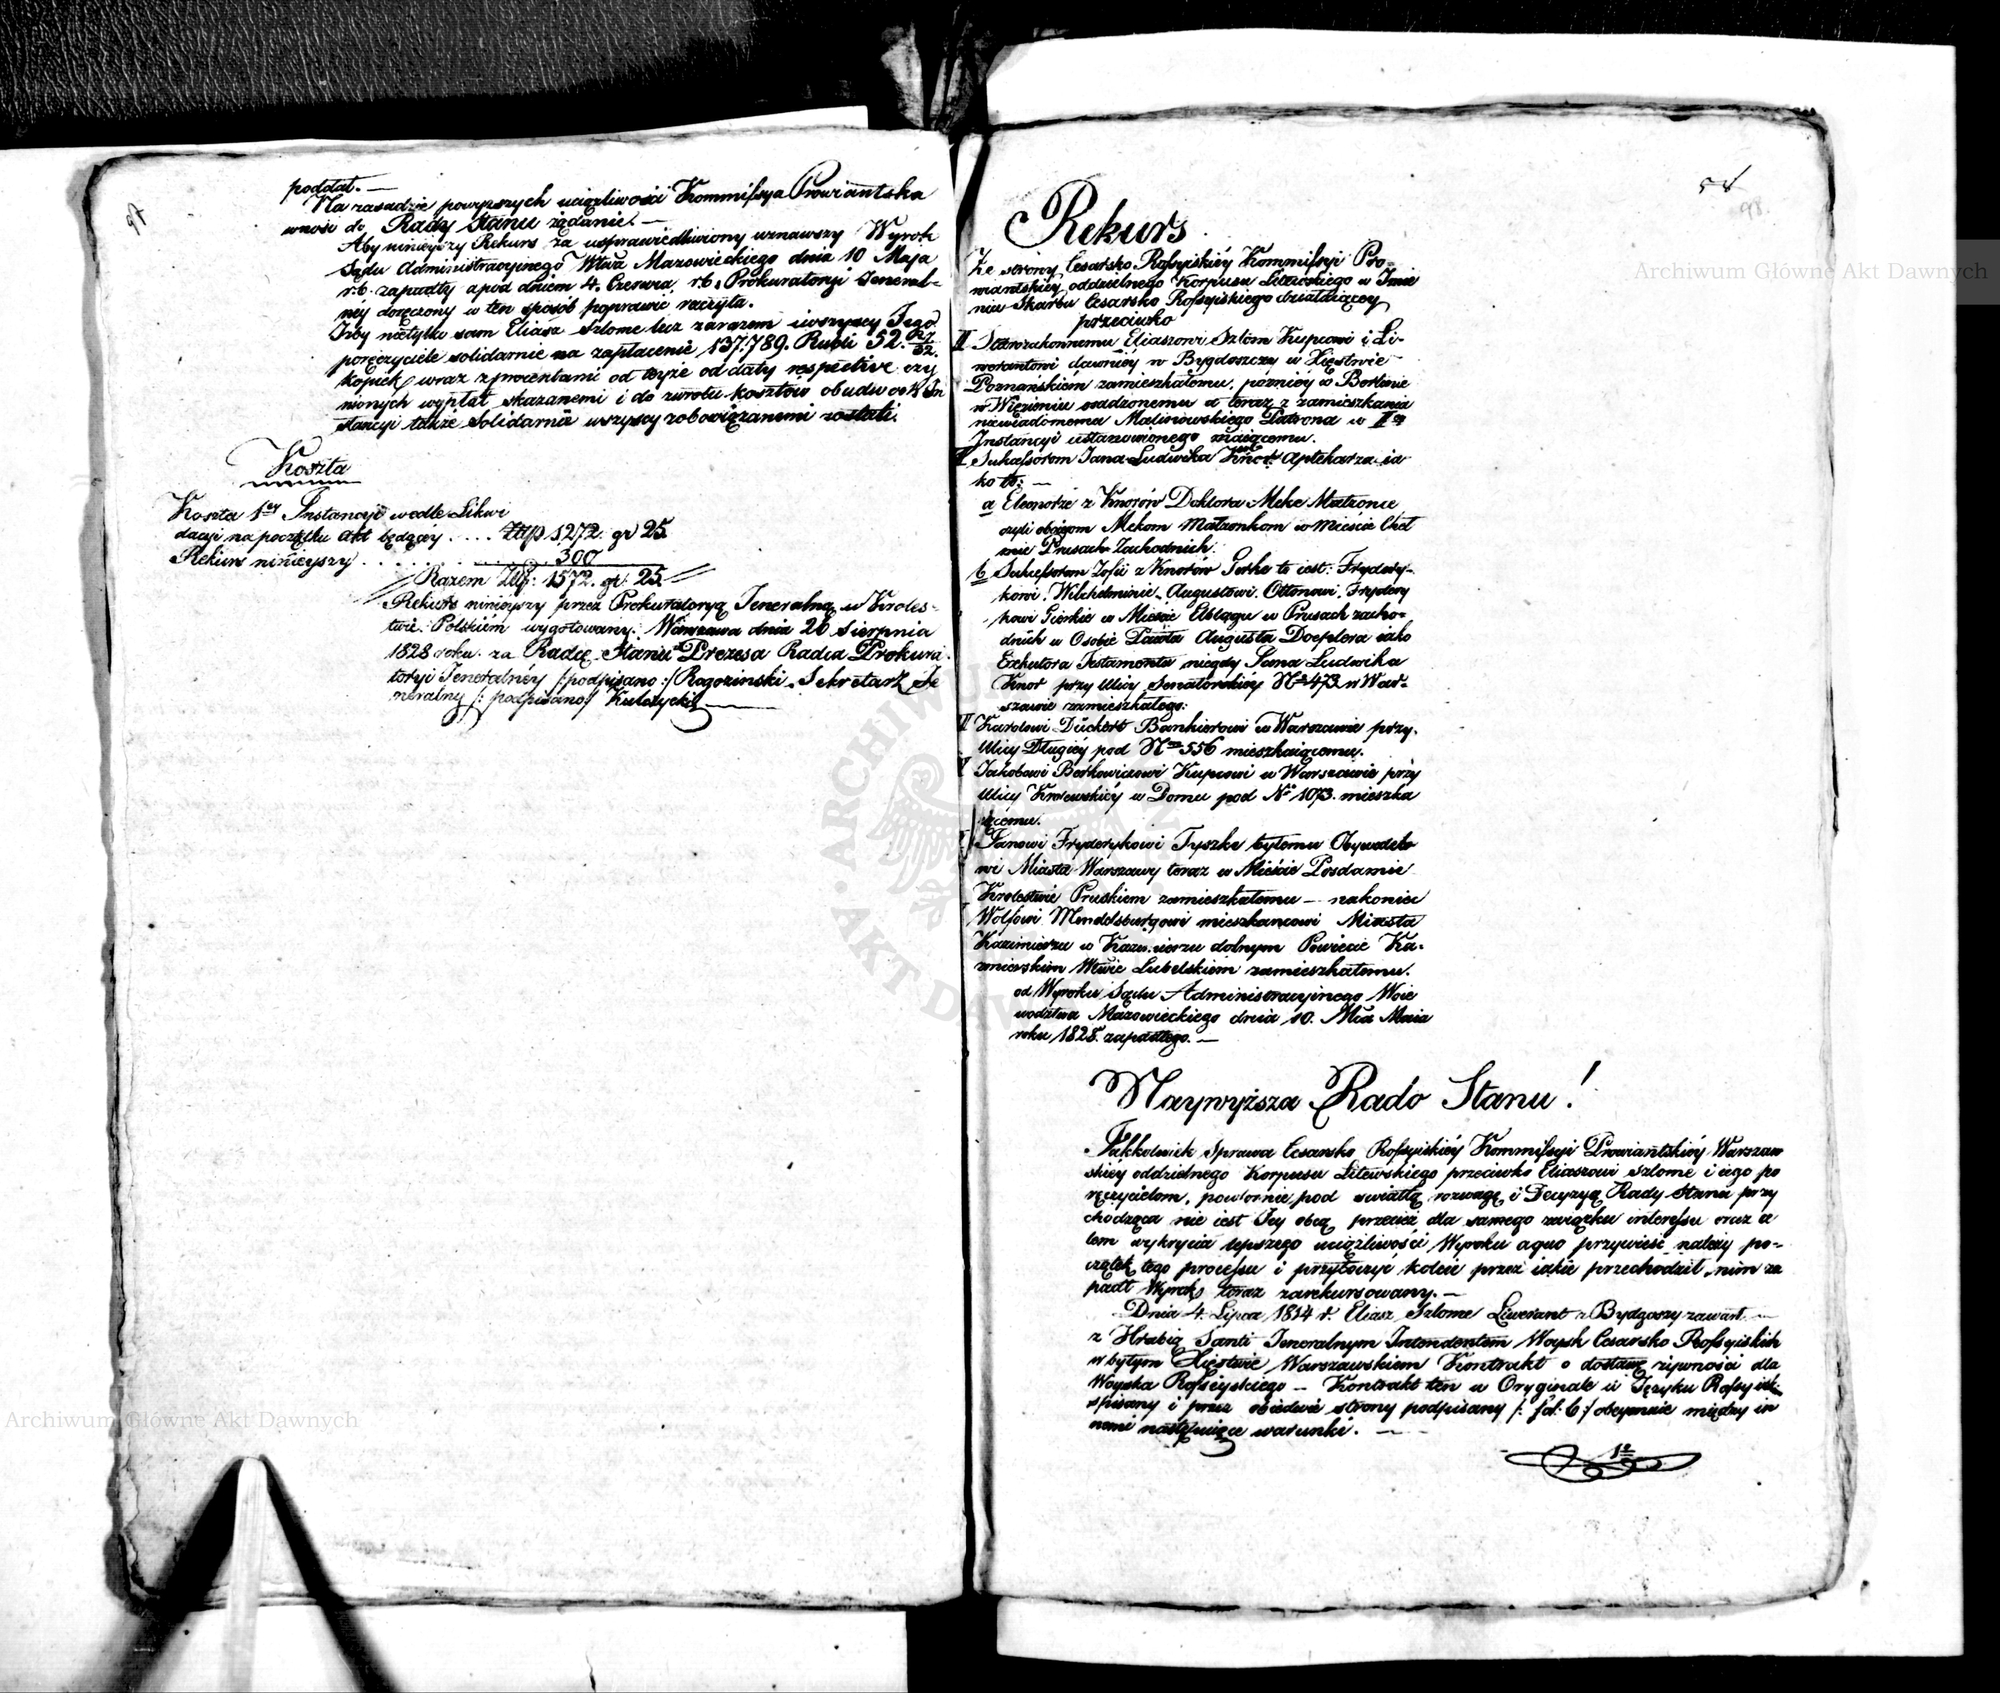 97
poddał. —
Na zasadzie powyższych uciążliwości Kommissya Prowiantska
wnosi do Rady Stanu żądanie. —
Aby ninieyszy Rekurs za usprawiedliwiony uznawszy Wyrok
Sądu Administracyinego Wtwa Mazowieckiego dnia 10 Maja
r. b. zapadły a pod dniem 4. Czerwca r. b. Prokuratoryi Jeneral-
néy doręczony w ten sposób poprawić raczyła.
Iżby nietylko sam Eliasz Szlome lecz zarazem i wszyscy Jego
poręczyciele solidarnie na zapłacenie 137.789. Rubli 52.
kopiek wraz z procentami od teyże od daty respective czy
nionych wypłat skazanemi i do zwrotu kosztów obudwóch In
stancyi także Solidarnie wszyscy zobowiązanemi zostali.
Koszta
Koszta 1éy Instancyi wedle Likwi
dacyi na początku akt będącéy .... Złłp 1272. gr 25.
Rekurs ninieyszy . . . . . . . 300
Razem Złłp: 1572. gr: 25.
Rekurs ninieyszy przez Prokuratoryą Jeneralną w Króles-
twie Polskiem wygotowany. Warszawa dnia 20 Sierpnia
1828 roku. za Radcę Stanu Prezesa Radca Prokura
toryi Jeneralnéy /:podpisano:/ Rogoziński. Sekretarz Je
neralny /: podpisano:/ Kulczycki
54
98.
Rekurs
Ze strony Cesarsko Rossyiskiéy Kommissyi Pro-
wiantskiéy oddzielnego Korpusu Litewskiego w Imie
niu Skarbu Cesarsko Rossyiskiego działaiącéy
przeciwko
Starozakonnemu Eliaszowi Szlom Kupcowi i Li-
werantowi dawniéy w Bydgoszczy w Xięstwie
Poznańskiem zamieszkałemu, poźniéy w Berlinie
w Więzieniu osadzonemu a teraz z zamieszkania
niewiadomemu Malinowskiego Patrona w IIéy
Instancyi ustanowionego maiącemu.
Sukcessorom Jana Ludwika Knor Aptekarza ia
ko to: —
a Eleonorze z Knorów Doktora Meke Małżonce
czyli oboygom Mekom Małżonkom w Mieście Cheł
mnie Prusach Zachodnich.
b Sukcessorom Zofii z Knorów Gerke to iest: Frydery-
kowi, Wilchelminie, Augustowi, Ottonowi, Frydery
kowi Gierkie w Mieście Elblągu w Prusach zacho-
dnich w Osobie Pawła Augusta Doeplera iako
Exkutora Testamentu niegdy Jana Ludwika
Knor przy Ulicy Senatorskiéy No 473 w War-
szawie zamieszkałego:
Karolowi Dückert Bankierowi w Warszawie przy
Ulicy Długiéy pod No 556 mieszkaiącemu.
Jakobowi Berkowiczowi Kupcowi w Warszawie przy
Ulicy Krolewskiéy w Domu pod No 1073. mieszka
iącemu.
Janowi Fryderykowi Tyszke byłemu Obywatelo
wi Miasta Warszawy teraz w Mieście Posdamie
Krolestwie Pruskiem zamieszkałemu — nakoniec
Wolfowi Mendelsburgowi mieszkancowi Miasta
Kazimierza w Kazimierzu dolnym Powiecie Ka-
zmierskim Wtwie Lubelskiem zamieszkałemu.
od Wyroku Sądu Administracyinego Woie
wodztwa Mazowieckiego dnia 10. Mca Maia
roku 1828. zapadłego. —
Naywyższa Rado Stanu!
Jakkolwiek Sprawa Cesarsko Rossyiskiéy Kommissyi Prowiantskiéy Warszaw
skiéy oddzielnego Korpusu Litewskiego przeciwko Eliaszowi Szlome i iego po
ręczycielom, powtornie pod światłą rozwagę i Decyzyą Rady Stanu przy
chodząca nie iest Jey obcą, przecież dla samego związku interessu oraz ce
lem wykrycia lepszego uciążliwości Wyroku a quo przywieść należy po-
czątek tego processu i przytoczyć koleie przez iakie przechodził, nim za
padł Wyrok teraz zarekursowany. —
Dnia 4 Lipca 1814 r. Eliasz Szlome Liwerant z Bydgoszy zawarł
z Hrabią Santi Jeneralnym Intendentem Woysk Cesarsko Rossyiskich
w byłym Xięstwie Warszawskiem Kontrakt o dostawę żywności dla
Woyska Rossyiskiego — Kontrakt ten w Oryginale w Języku Rossyisk.
spisany i przez obiedwie strony podpisany /: fol: 6:/ obeymuie między in
nemi następuiące warunki. —
1o
Archiwum Główne Akt Dawnych
Archiwum Główne Akt Dawnych